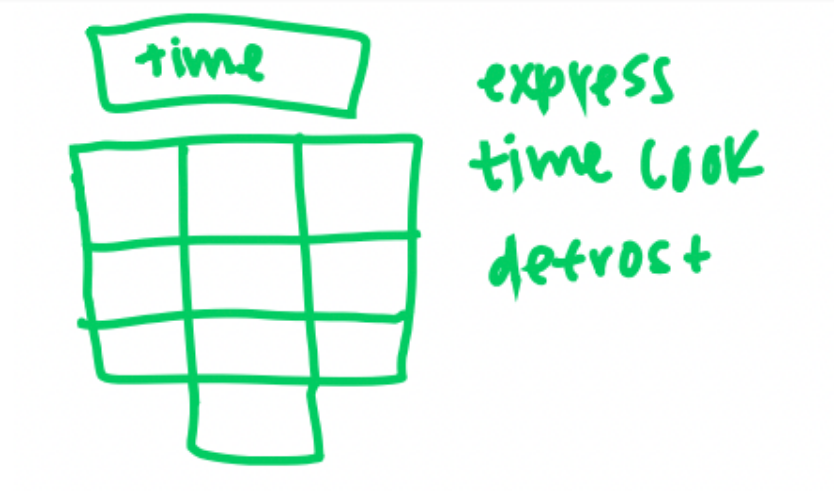 time
express
time cook
defrost